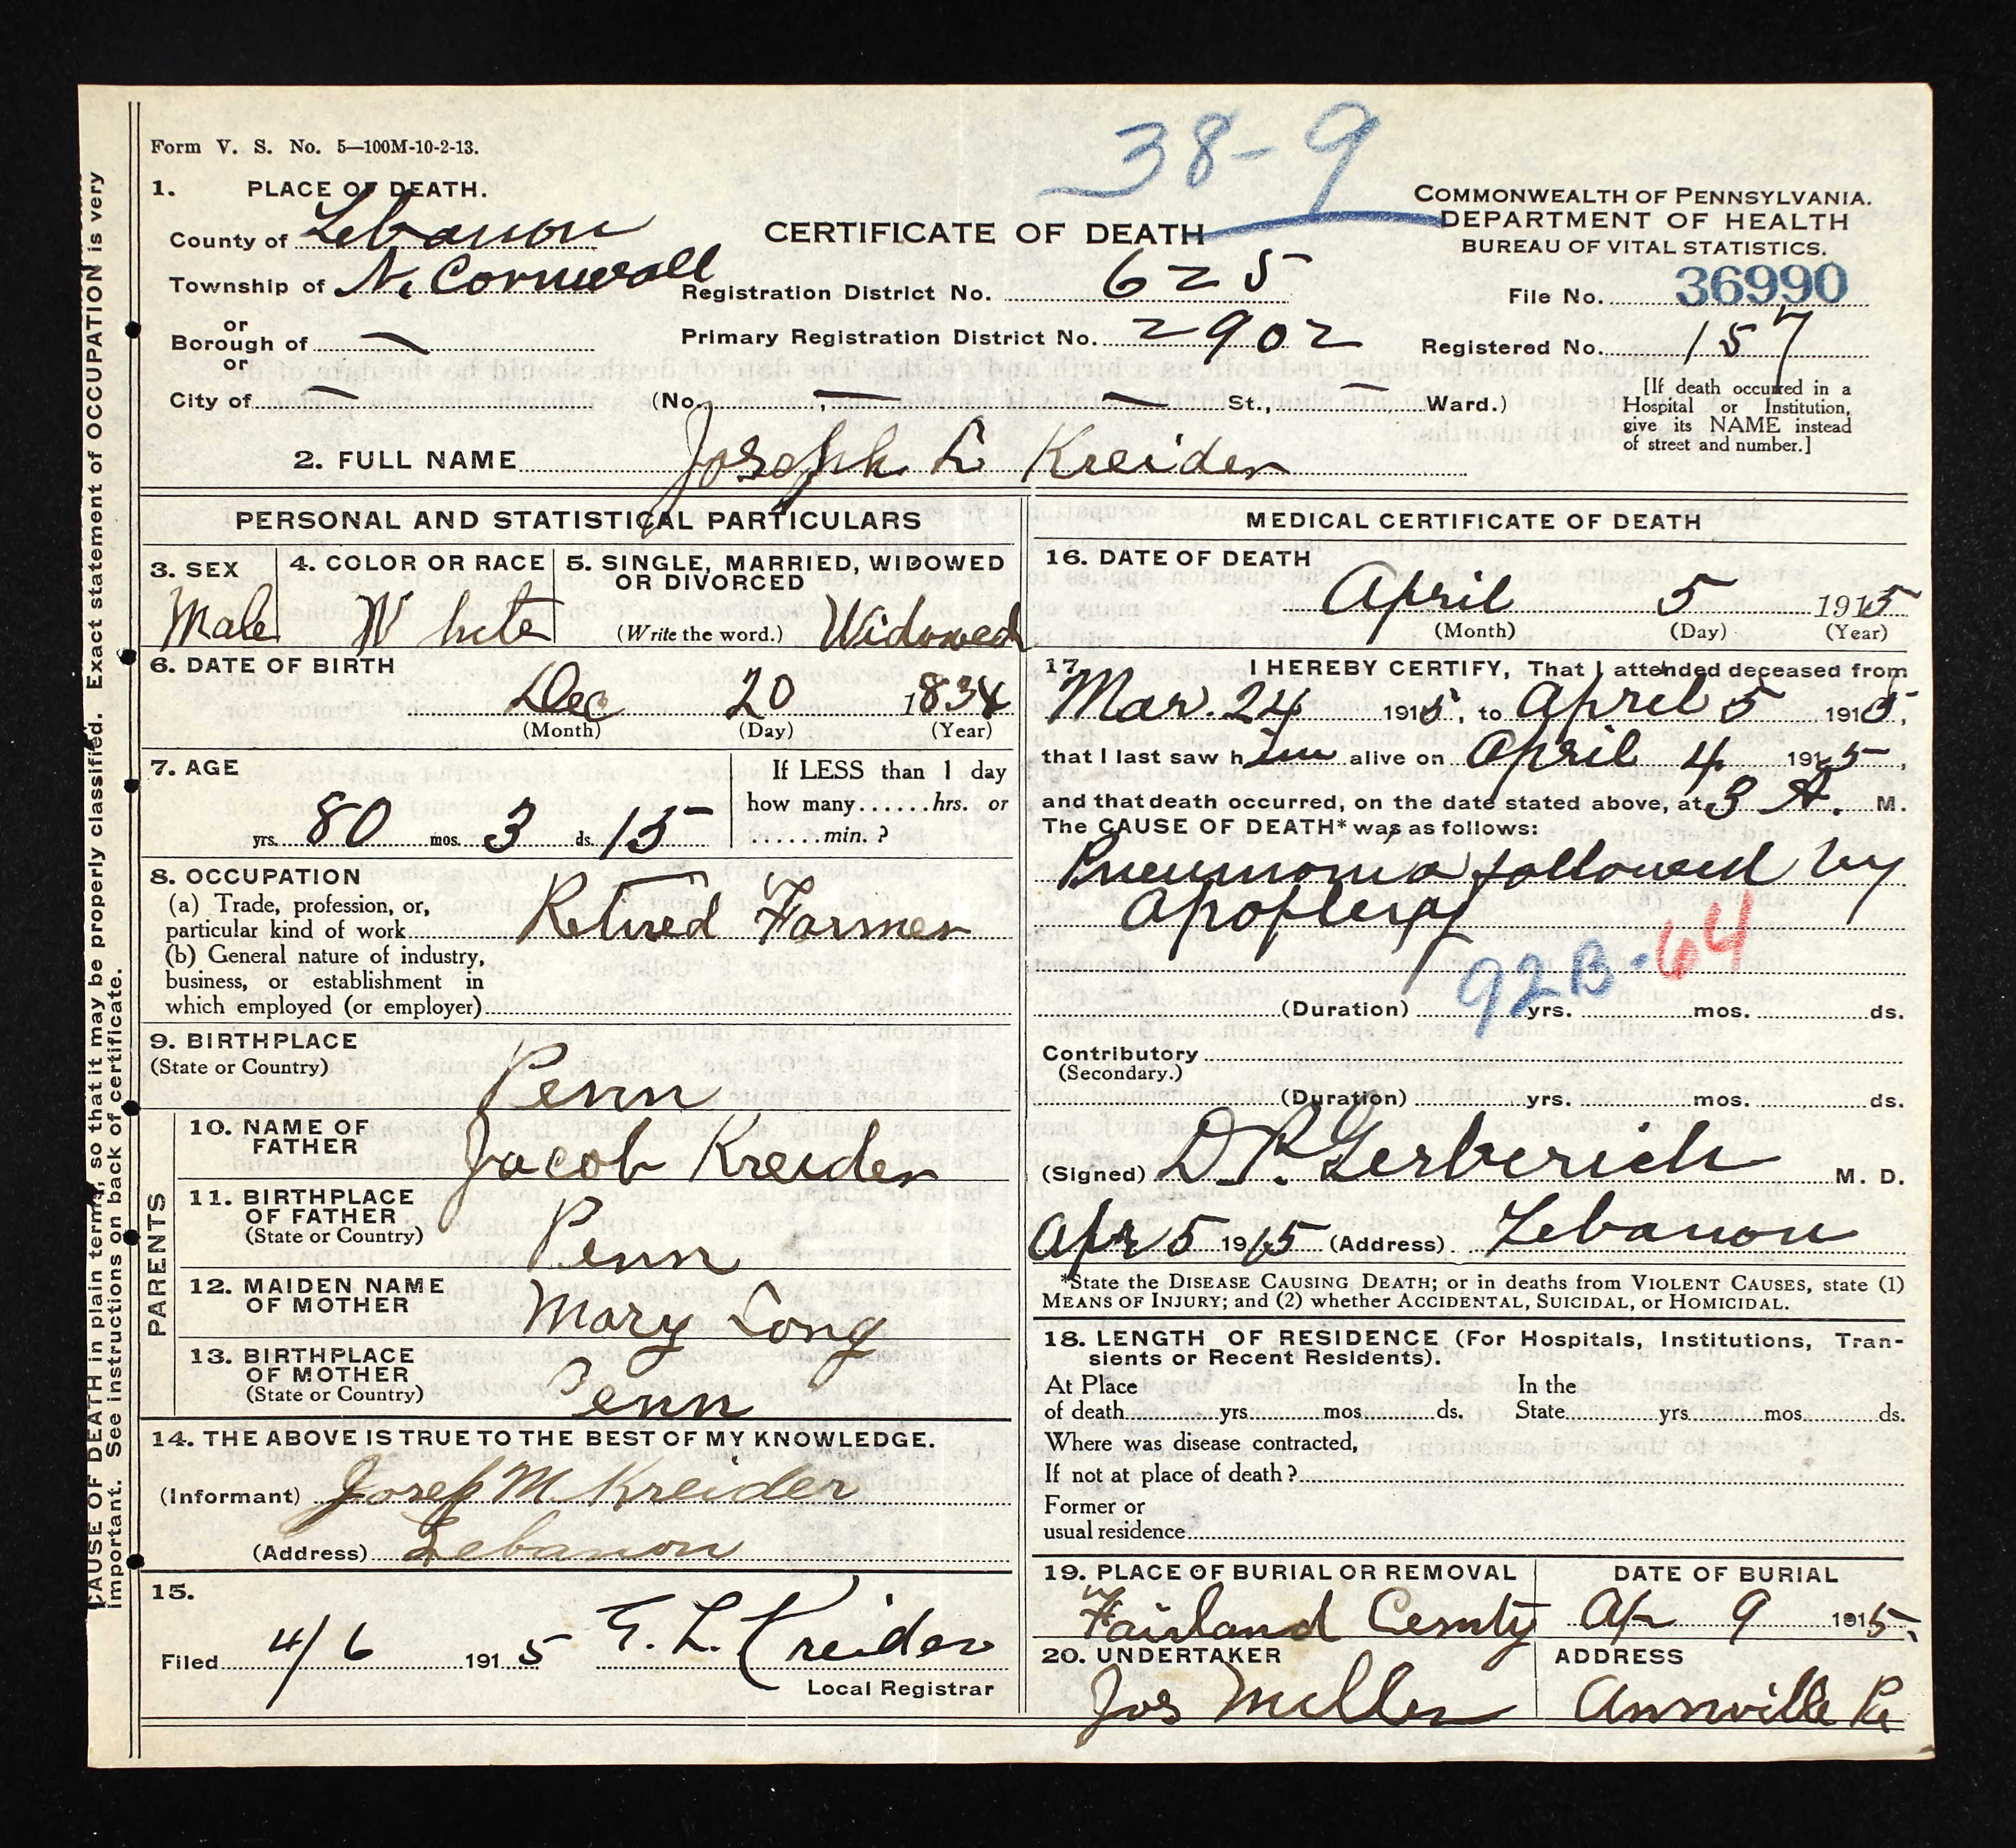 38-9
Form V. S. No. 5—100M-10-2-13.
1. PLACE OF DEATH.
County of Lebanon
Township of N. Cornwall
or
Borough of —
or
City of —
CERTIFICATE OF DEATH
Registration District No. 625
Primary Registration District No. 2902
(No. — , — St., — Ward.)
COMMONWEALTH OF PENNSYLVANIA.
DEPARTMENT OF HEALTH
BUREAU OF VITAL STATISTICS.
File No. 36990
Registered No. 157
[If death occurred in a
Hospital or Institution,
give its NAME instead
of street and number.]
2. FULL NAME Joseph L Kreider
PERSONAL AND STATISTICAL PARTICULARS
3. SEX
Male
4. COLOR OR RACE
White
5. SINGLE, MARRIED, WIDOWED
OR DIVORCED
(Write the word.) Widowed
6. DATE OF BIRTH
Dec 20 1834
(Month) (Day) (Year)
7. AGE
yrs. 80 mos. 3 ds. 15
If LESS than 1 day
how many......hrs. or
......min. ?
8. OCCUPATION
(a) Trade, profession, or,
particular kind of work Retired Farmer
(b) General nature of industry,
business, or establishment in
which employed (or employer)
9. BIRTHPLACE
(State or Country)
Penn
PARENTS
10. NAME OF
FATHER
Jacob Kreider
11. BIRTHPLACE
OF FATHER
(State or Country)
Penn
12. MAIDEN NAME
OF MOTHER
Mary Long
13. BIRTHPLACE
OF MOTHER
(State or Country)
Penn
14. THE ABOVE IS TRUE TO THE BEST OF MY KNOWLEDGE.
(Informant) Josep M. Kreider
(Address) Lebanon
15.
Filed 4/6 1915 E. L. Kreider
Local Registrar
MEDICAL CERTIFICATE OF DEATH
16. DATE OF DEATH
April 5 1915
(Month) (Day) (Year)
17. I HEREBY CERTIFY, That I attended deceased from
Mar. 24 1915, to April 5 1915,
that I last saw him alive on April 4 1915,
and that death occurred, on the date stated above, at 3 A. M.
The CAUSE OF DEATH* was as follows:
Pneumonia followed by
Apoplexy
92B-64
(Duration) yrs. mos. ds.
Contributory
(Secondary.)
(Duration) yrs. mos. ds.
(Signed) D. P. Gerberich M. D.
Apr 5 1915 (Address) Lebanon
*State the DISEASE CAUSING DEATH; or in deaths from VIOLENT CAUSES, state (1)
MEANS OF INJURY; and (2) whether ACCIDENTAL, SUICIDAL, or HOMICIDAL.
18. LENGTH OF RESIDENCE (For Hospitals, Institutions, Tran-
sients or Recent Residents).
At Place In the
of death yrs. mos. ds. State yrs. mos. ds.
Where was disease contracted,
If not at place of death ?
Former or
usual residence
19. PLACE OF BURIAL OR REMOVAL
Fairland Cemty
DATE OF BURIAL
Ap 9 1915.
20. UNDERTAKER
Jos Miller
ADDRESS
Annville Pa
CAUSE OF DEATH in plain terms, so that it may be properly classified. Exact statement of OCCUPATION is very
important. See instructions on back of certificate.